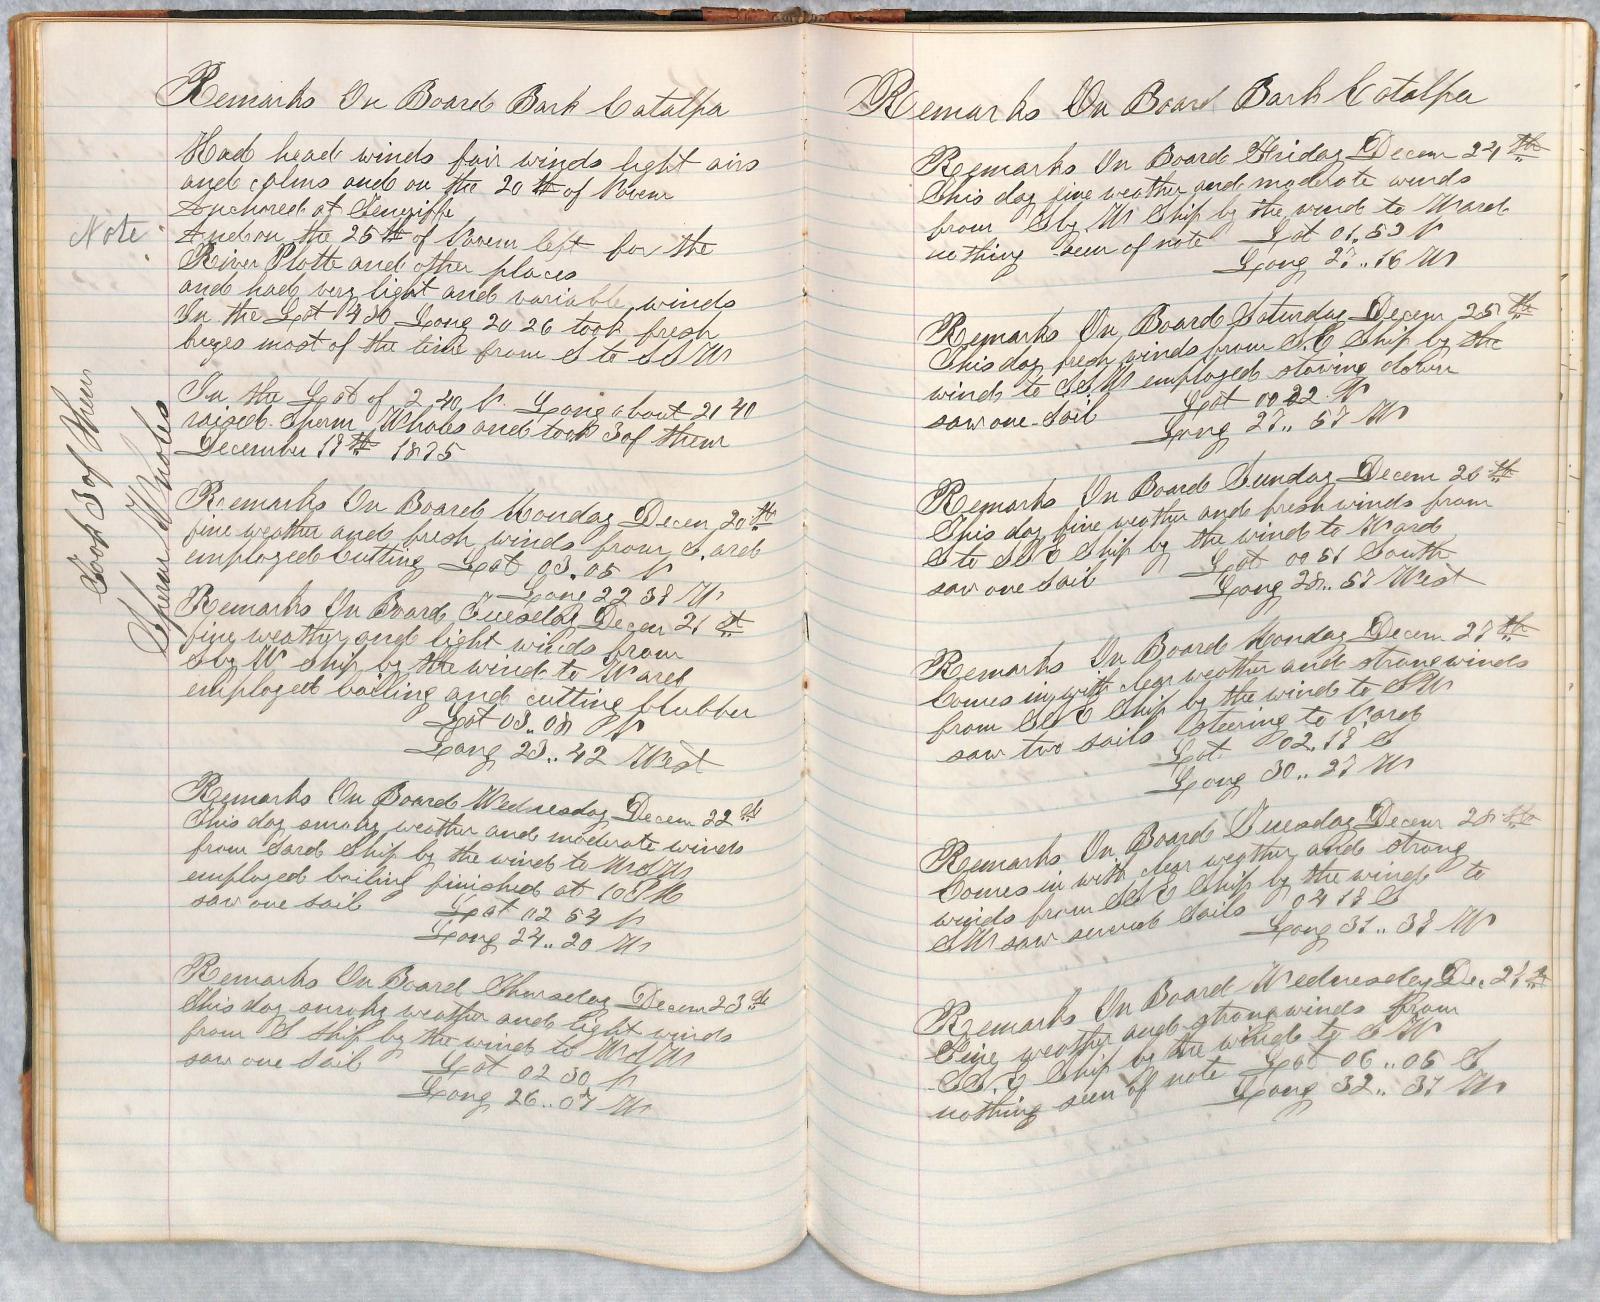 Remarks On Board Bark Catalpa
Had head winds fair winds light airs
and calms and on the 20th of Novem
Anchored at Teneriffe
Note
And on the 25th of Novem left for the
River Platte and other places
and had very light and variable winds
In the Lat 4 30 Long 20 26 took fresh
brezes most of the time from S to SSW
In the Lat of 2 40 N. Long about 21 40
raised Sperm Whales and took 3 of them
December 18th 1875
Took 3 of them
Sperm Whales
Remarks On Board Monday Decem 20th
fine weather and fresh winds from S.ard
employed Cutting Lat 03.05 N
Long 22 38 W
Remarks On Board Tuesday Decem 21st
fine weather and light winds from
S by W Ship by the wind to Ward
employed boiling and cutting blubber
Lat 03..08 N
Long 23..42 West
Remarks On Board Wednesday Decem 22d
This day smoky weather and moderate winds
from Sard Ship by the wind to WSW
employed boiling finished at 10 PM
saw one sail Lat 02 54 N
Long 24..20 W
Remarks On Board Thursday Decem 23d
This day smoky weather and light winds
from S ship by the wind to WSW
saw one Sail Lat 02 30 N
Long 26..07 W
Remarks On Board Bark Catalpa
Remarks On Board Friday Decem 24th
This day fine weather and moderate winds
from S by W Ship by the wind to Ward
nothing seen of note Lat 01..53 N
Long 27..16 W
Remarks On Board Saturday Decem 25th
This day fresh winds from S.E Ship by the
wind to SSW employed stowing down
saw one Sail Lat 00 22 N
Long 27..57 W
Remarks On Board Sunday Decem 26th
This day fine weather and fresh winds from
S to SSE Ship by the wind to Ward
saw one Sail Lat 00 51 South
Long 28..57 West
Remarks On Board Monday Decem 27th
Comes in with clear weather and strong winds
from SSE Ship by the wind to SW
saw two sails steering to N.ard
Lat 02.18 S
Long 30..27 W
Remarks On Board Tuesday Decem 28th
Comes in with clear weather and strong
winds from SSE Ship by the wind to
SW saw several Sails 04 18 S
Long 31..38 W
Remarks On Board Wednesday Dec. 29th
Fine weather and strong winds from
SS.E Ship by the wind to SW
nothing seen of note Lat 06..05 S
Long 32..37 W